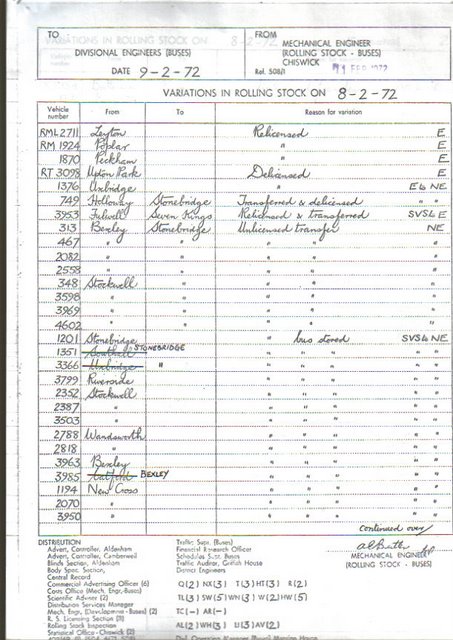 TO
FROM
DIVISIONAL ENGINEERS (BUSES)
MECHANICAL ENGINEER
(ROLLING STOCK - BUSES)
CHISWICK
DATE 9-2-72
Ref. 508/1
11 FEB 1972
VARIATIONS IN ROLLING STOCK ON 8-2-72
Vehicle number From To Reason for variation
RML 2711 Leyton Relicensed E
RM 1924 Poplar " E
1870 Peckham " E
RT 3098 Upton Park Delicensed E
1376 Uxbridge " E to NE
749 Holloway Stonebridge Transferred & delicensed " "
3953 Fulwell Seven Kings Relicensed & transferred SVS to E
313 Bexley Stonebridge Unlicensed transfer NE
467 " " " " "
2082 " " " " "
2558 " " " " "
348 Stockwell " " " "
3598 " " " " "
3969 " " " " "
4602 " " " " "
1201 Stonebridge " bus stored SVS to NE
1351 Southall STONEBRIDGE " " " " "
3366 Uxbridge " " " " " "
3799 Riverside " " " " "
2352 Stockwell " " " " "
2387 " " " " " "
3503 " " " " " "
2788 Wandsworth " " " " "
2818 " " " " " "
3963 Bexley " " " " "
3985 Catford BEXLEY " " " " "
1194 New Cross " " " " "
2070 " " " " " "
3950 " " " " " "
continued over
DISTRIBUTION
Advert. Controller, Aldenham
Advert. Controller, Camberwell
Blinds Section, Aldenham
Body Spec. Section,
Central Record
Commercial Advertising Officer (6)
Costs Office (Mech. Engr.-Buses)
Scientific Adviser (2)
Distribution Services Manager
Mech. Engr. Development - Buses) (2)
R. S. Licensing Section (3)
Rolling Stock Inspection
Statistical Office - Chiswick (2)
Traffic Supt. (Buses)
Financial Research Officer
Schedules Supt. Buses
Traffic Auditor, Griffith House
District Engineers
Q(2) NX(3) T(3) HT(3) R(2)
TL(3) SW(5) WN(3) W(2) HW(5)
TC(-) AR(-)
AL(2) WH(3) U(3) AV(2)
MECHANICAL ENGINEER
(ROLLING STOCK - BUSES)